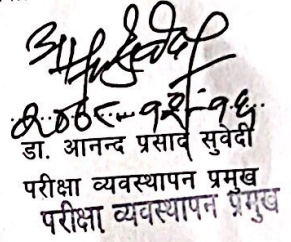 २०७८-१२-१६
डा. आनन्द प्रसाद सुवेदी
परीक्षा व्यवस्थापन प्रमुख
परीक्षा व्यवस्थापन प्रमुख